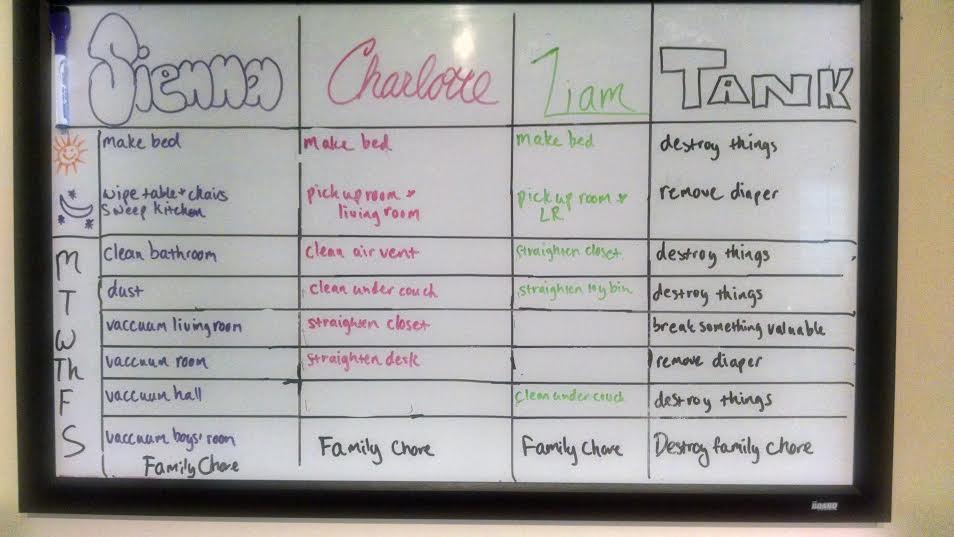 Sienna Charlotte Liam TANK
make bed make bed make bed destroy things
wipe table + chairs pick up room + pick up room + remove diaper
Sweep Kitchen living room LR
M clean bathroom clean air vent straighten closet destroy things
T dust clean under couch straighten toy bin destroy things
W vaccuum living room straighten closet break something valuable
Th vaccuum room straighten desk remove diaper
F vaccuum hall clean under couch destroy things
S vaccuum boys' room Family Chore Family Chore Destroy family chore
Family Chore
BOARD